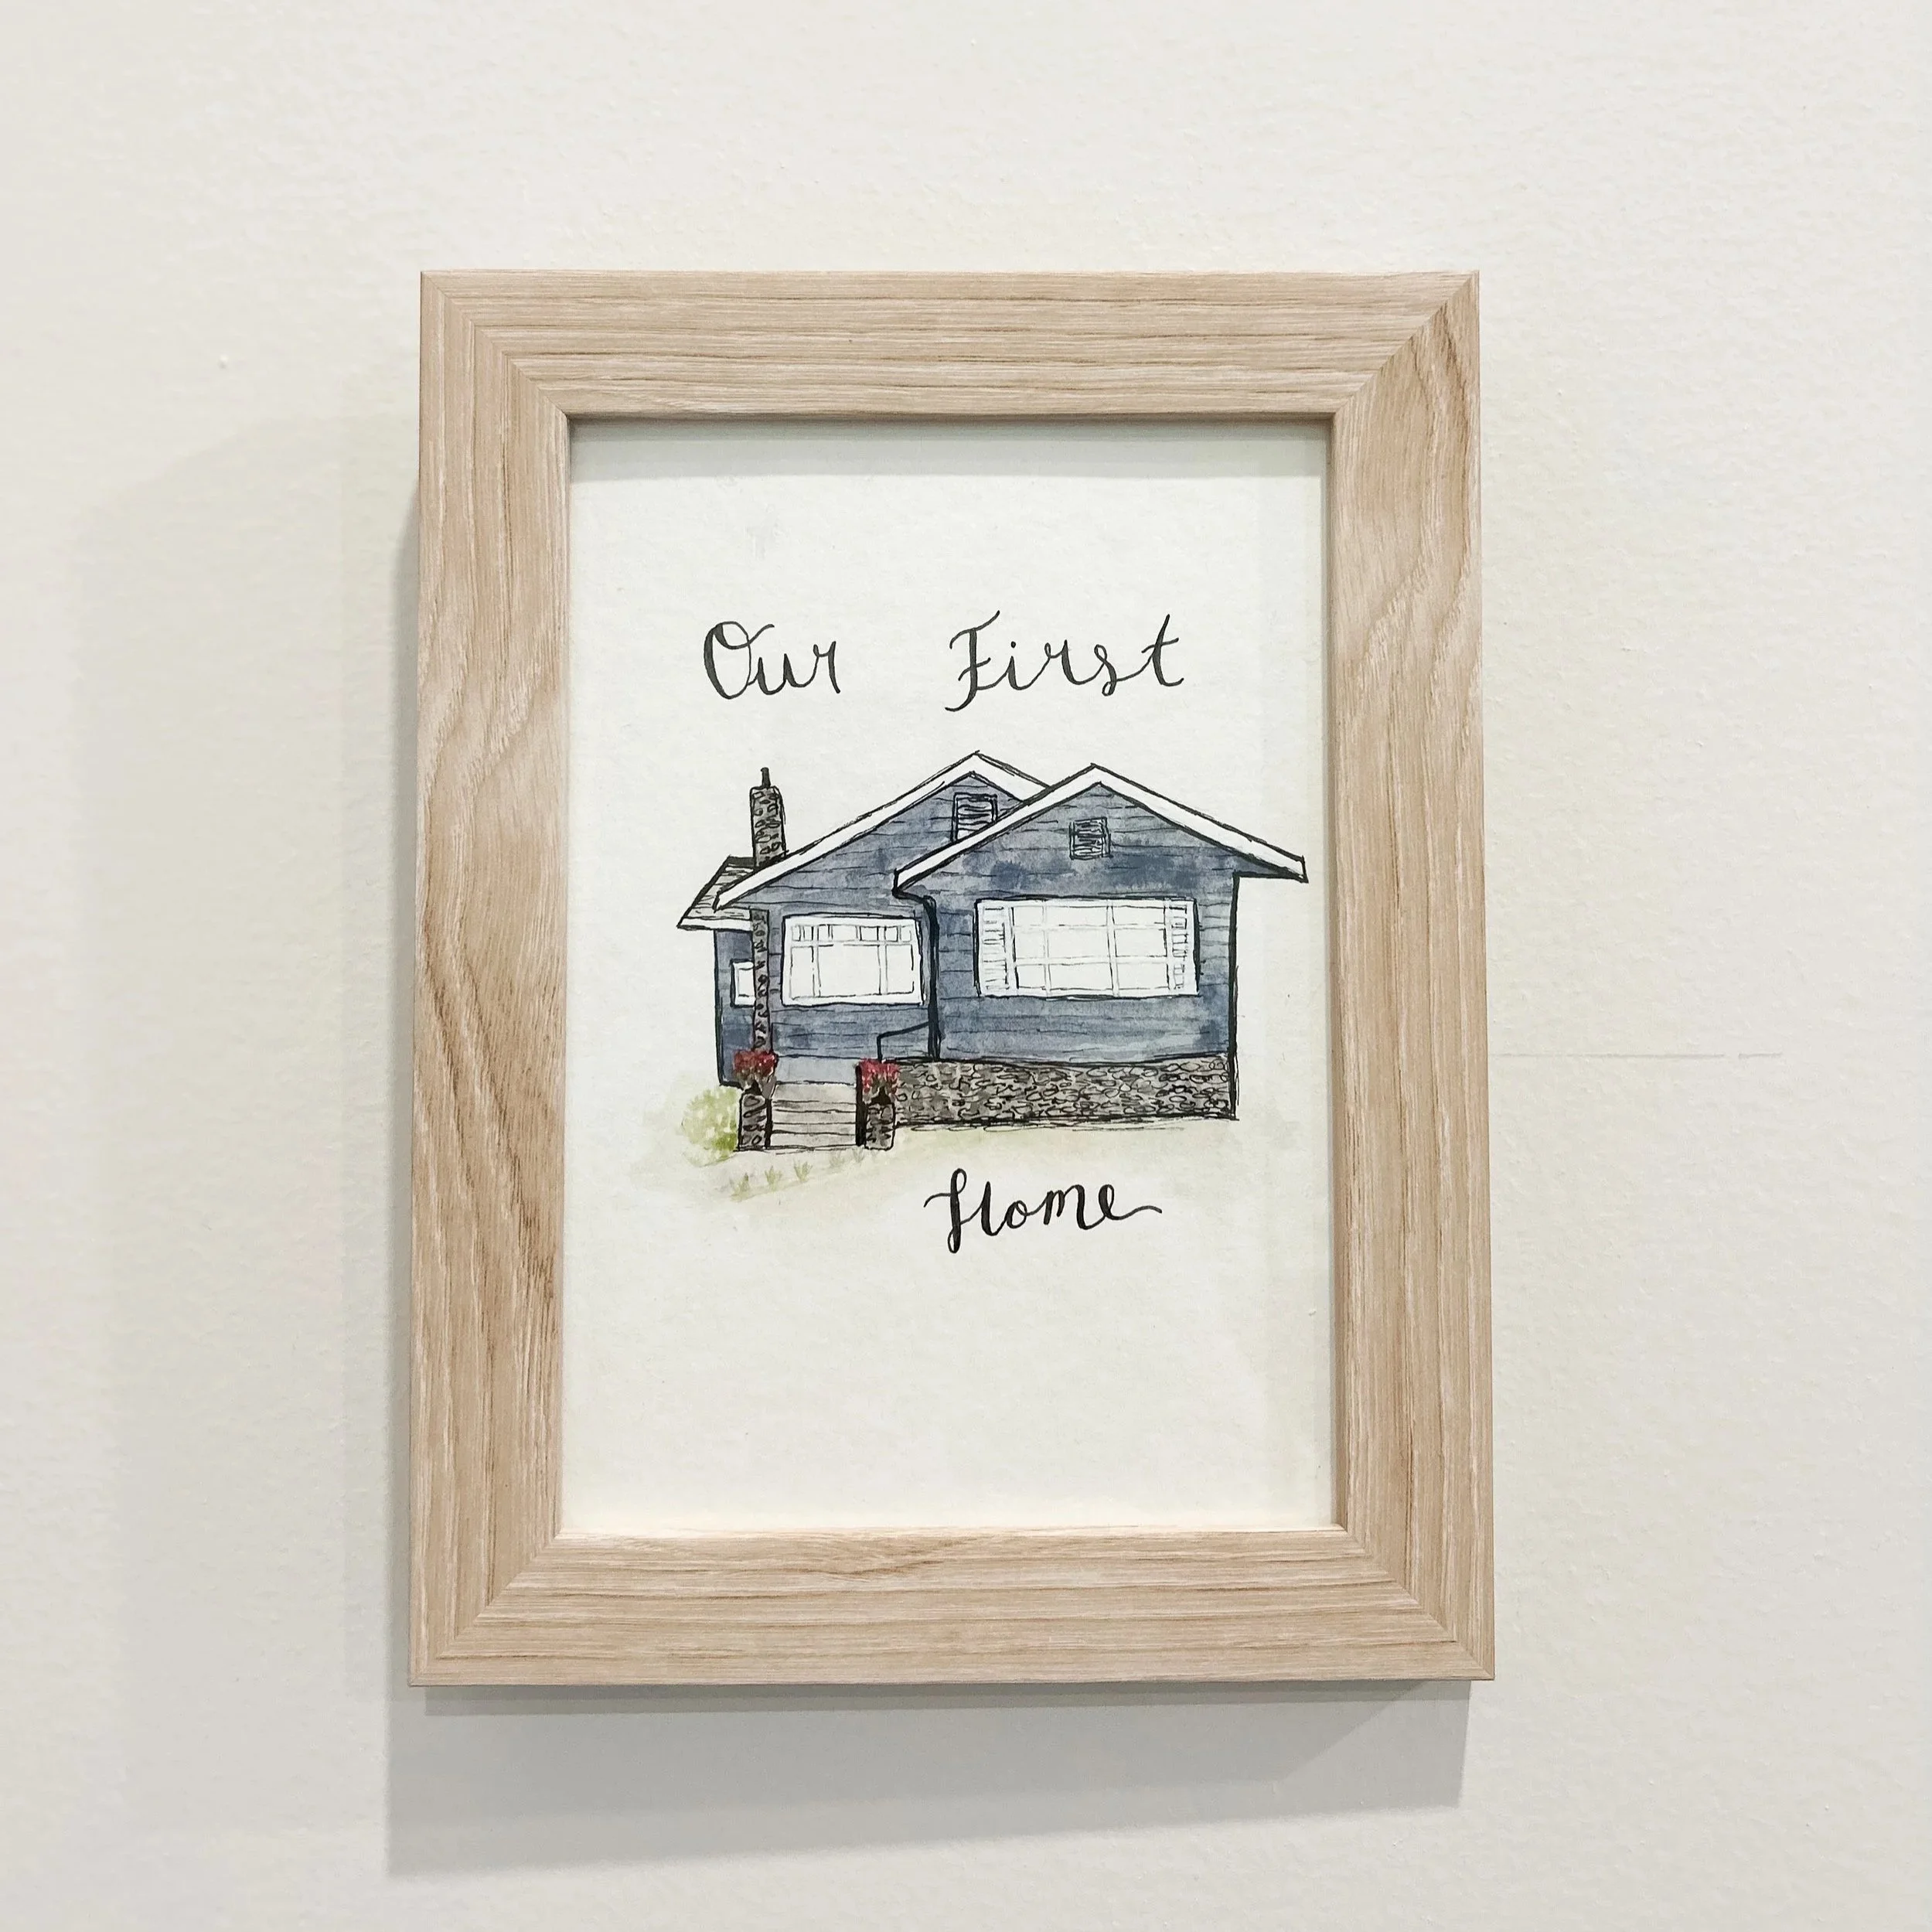 Our First
Home